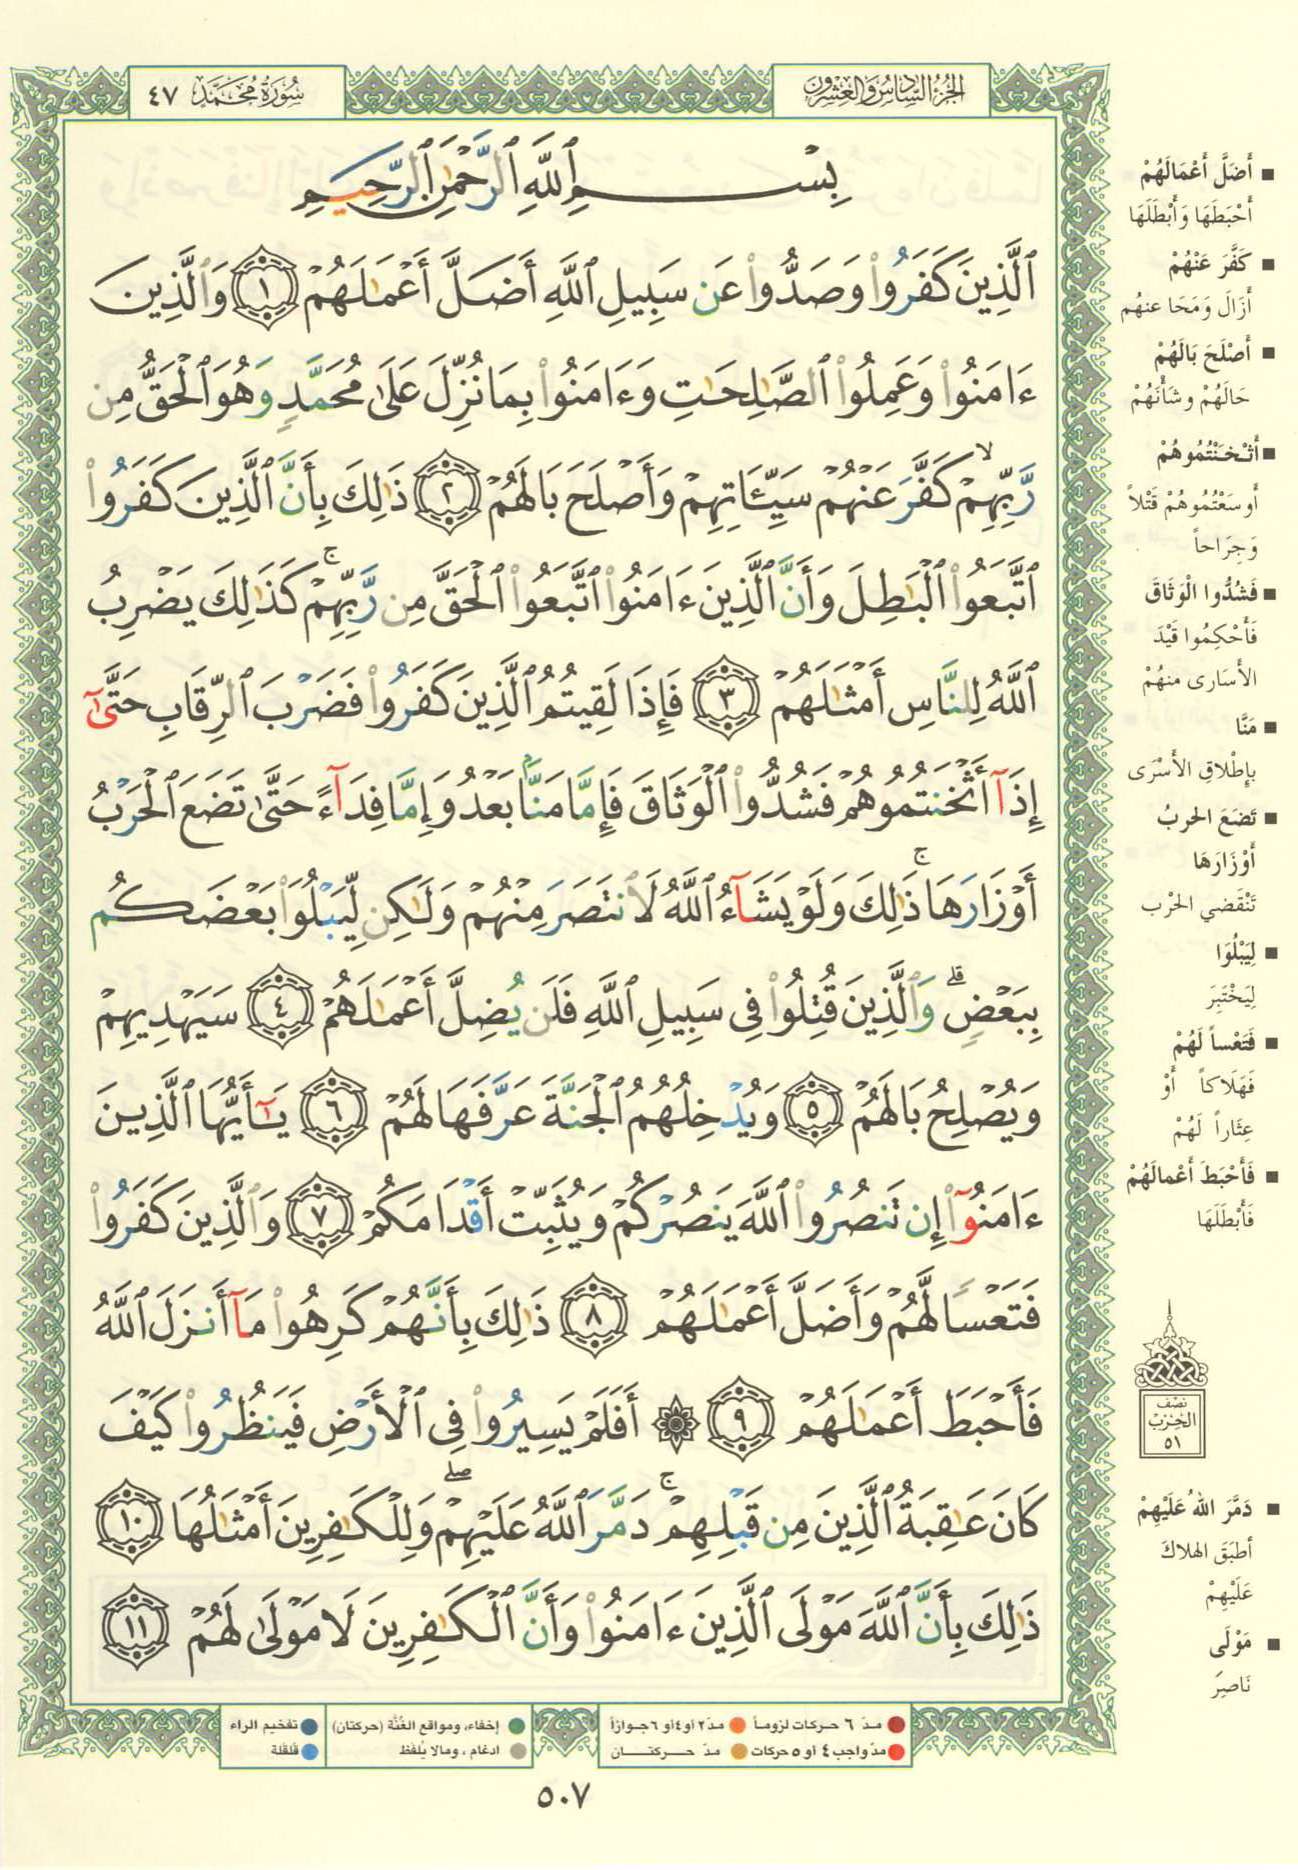 الجزء السادس والعشرون
سورة محمد ٤٧
بِسْمِ ٱللَّهِ ٱلرَّحْمَٰنِ ٱلرَّحِيمِ
ٱلَّذِينَ كَفَرُوا۟ وَصَدُّوا۟ عَن سَبِيلِ ٱللَّهِ أَضَلَّ أَعْمَٰلَهُمْ ١ وَٱلَّذِينَ
ءَامَنُوا۟ وَعَمِلُوا۟ ٱلصَّٰلِحَٰتِ وَءَامَنُوا۟ بِمَا نُزِّلَ عَلَىٰ مُحَمَّدٍ وَهُوَ ٱلْحَقُّ مِن
رَّبِّهِمْ ۙ كَفَّرَ عَنْهُمْ سَيِّـَٔاتِهِمْ وَأَصْلَحَ بَالَهُمْ ٢ ذَٰلِكَ بِأَنَّ ٱلَّذِينَ كَفَرُوا۟
ٱتَّبَعُوا۟ ٱلْبَٰطِلَ وَأَنَّ ٱلَّذِينَ ءَامَنُوا۟ ٱتَّبَعُوا۟ ٱلْحَقَّ مِن رَّبِّهِمْ ۚ كَذَٰلِكَ يَضْرِبُ
ٱللَّهُ لِلنَّاسِ أَمْثَٰلَهُمْ ٣ فَإِذَا لَقِيتُمُ ٱلَّذِينَ كَفَرُوا۟ فَضَرْبَ ٱلرِّقَابِ حَتَّىٰٓ
إِذَآ أَثْخَنتُمُوهُمْ فَشُدُّوا۟ ٱلْوَثَاقَ فَإِمَّا مَنًّۢا بَعْدُ وَإِمَّا فِدَآءً حَتَّىٰ تَضَعَ ٱلْحَرْبُ
أَوْزَارَهَا ۚ ذَٰلِكَ وَلَوْ يَشَآءُ ٱللَّهُ لَٱنتَصَرَ مِنْهُمْ وَلَٰكِن لِّيَبْلُوَا۟ بَعْضَكُم
بِبَعْضٍ ۗ وَٱلَّذِينَ قُتِلُوا۟ فِى سَبِيلِ ٱللَّهِ فَلَن يُضِلَّ أَعْمَٰلَهُمْ ٤ سَيَهْدِيهِمْ
وَيُصْلِحُ بَالَهُمْ ٥ وَيُدْخِلُهُمُ ٱلْجَنَّةَ عَرَّفَهَا لَهُمْ ٦ يَٰٓأَيُّهَا ٱلَّذِينَ
ءَامَنُوٓا۟ إِن تَنصُرُوا۟ ٱللَّهَ يَنصُرْكُمْ وَيُثَبِّتْ أَقْدَامَكُمْ ٧ وَٱلَّذِينَ كَفَرُوا۟
فَتَعْسًا لَّهُمْ وَأَضَلَّ أَعْمَٰلَهُمْ ٨ ذَٰلِكَ بِأَنَّهُمْ كَرِهُوا۟ مَآ أَنزَلَ ٱللَّهُ
فَأَحْبَطَ أَعْمَٰلَهُمْ ٩ ۞ أَفَلَمْ يَسِيرُوا۟ فِى ٱلْأَرْضِ فَيَنظُرُوا۟ كَيْفَ
كَانَ عَٰقِبَةُ ٱلَّذِينَ مِن قَبْلِهِمْ ۚ دَمَّرَ ٱللَّهُ عَلَيْهِمْ ۖ وَلِلْكَٰفِرِينَ أَمْثَٰلُهَا ١٠
ذَٰلِكَ بِأَنَّ ٱللَّهَ مَوْلَى ٱلَّذِينَ ءَامَنُوا۟ وَأَنَّ ٱلْكَٰفِرِينَ لَا مَوْلَىٰ لَهُمْ ١١
■ أَضَلَّ أَعْمَالَهُمْ
أَحْبَطَهَا وَأَبْطَلَهَا
■ كَفَّرَ عَنْهُمْ
أَزَالَ وَمَحَا عنهُم
■ أَصْلَحَ بَالَهُمْ
حَالَهُمْ وشَأْنَهُمْ
■ أَثْخَنْتُمُوهُمْ
أَوسَعْتُمُوهُمْ قَتْلاً
وَجِرَاحاً
■ فَشُدُّوا الْوَثَاقَ
فَأَحْكِمُوا قَيْدَ
الأَسَارى منهُمْ
■ مَنَّا
بإِطْلاقِ الأَسْرَى
■ تَضَعَ الحربُ
أَوْزَارَهَا
تَنْقَضي الحَرْب
■ لِيَبْلُوَا
لِيَخْتَبِرَ
■ فَتَعْساً لَهُمْ
فَهَلَاكاً أَوْ
عِثَاراً لَهُمْ
■ فَأَحْبَطَ أَعْمالَهُمْ
فَأَبْطَلَهَا
نصف
الحزب
٥١
■ دَمَّرَ اللهُ عَلَيْهِمْ
أطبَقَ الهلاكَ
عَلَيْهِمْ
■ مَوْلَى
نَاصِرَ
مدّ ٦ حركات لزوماً مدّ ٢ أو ٤ أو ٦ جوازاً
مدّ واجب ٤ أو ٥ حركات مدّ حركتان
إخفاء، ومواقع الغُنَّة (حركتان) تفخيم الراء
ادغام، ومالا يُلفظ قلقلة
٥٠٧